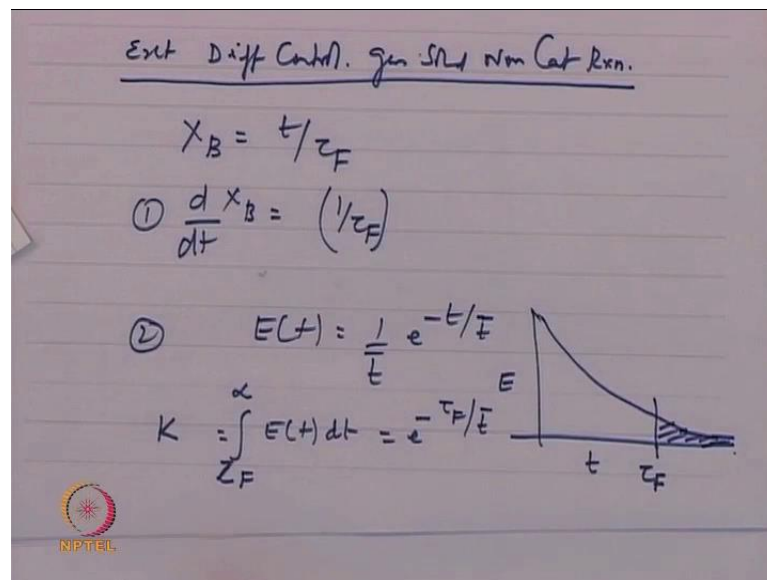 Ext Diff Control. gas Solid Non Cat Rxn.
X_B = t/τ_F
① d/dt X_B = (1/τ_F)
② E(t) = 1/t̄ e^{-t/t̄}
E
K = ∫_{τ_F}^{α} E(t) dt = e^{-τ_F/t̄}
t τ_F
NPTEL